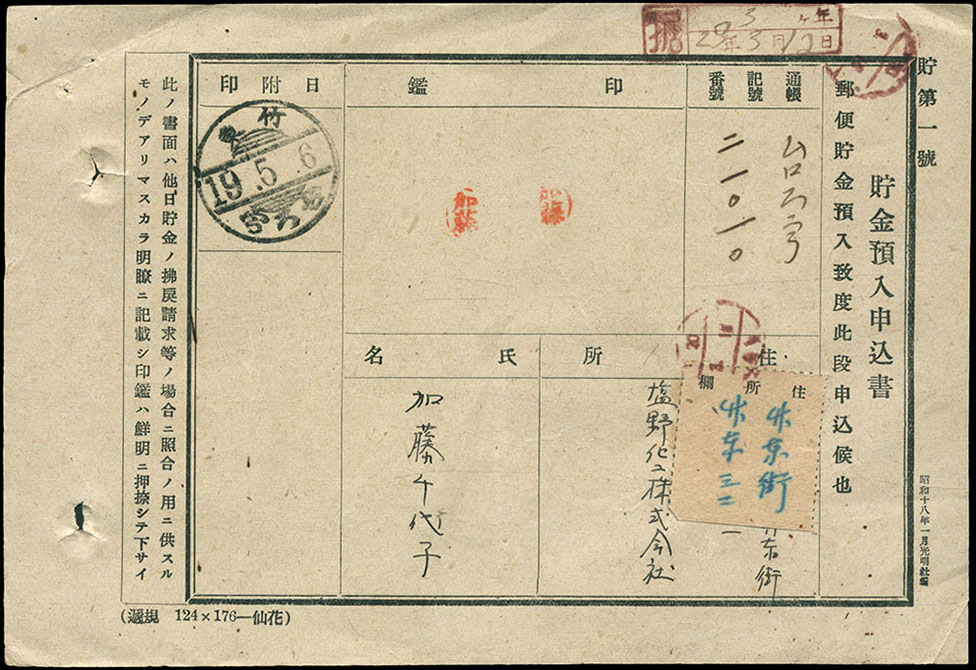 貯第一號
貯金預入申込書
郵便貯金預入致度此段申込候也
昭和十八年一月光明社編
通帳
記號
番號
二一〇一〇
印鑑
加藤
加藤
日附印
竹東
19.5.6
住所
塩野化工株式会社
東街
住所欄
竹东街
竹东三二
氏名
加藤千代子
年
29年3月12日
此ノ書面ハ他日貯金ノ拂戻請求等ノ場合ニ照合ノ用ニ供スル
モノデアリマスカラ明瞭ニ記載シ印鑑ハ鮮明ニ押捺シテ下サイ
(遞規 124×176—仙花)